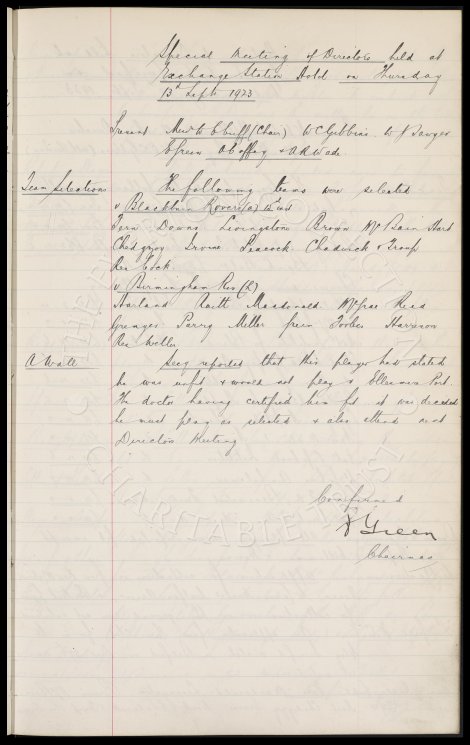 Special Meeting of Directors held at
Exchange Station Hotel on Thursday
13th Septr 1923
Present Messrs W C Cuff (Chair) W C Gibbins W J Sawyer
E Green A Coffey & A R Wade.
Team Selections The following teams were selected
v Blackburn Rovers (a) 15th inst
Fern Downs Livingstone Brown McBain Hart
Chedgzoy Irvine Peacock Chadwick & Troup
Res Cock.
v Birmingham Res (h)
Harland Raitt Macdonald McGras Reid
Granger Parry Miller Green Forbes Harrison
Res Weller
A. Wall Secy reported that this player had stated
he was unfit & would not play v Ellesmere Port.
The doctor having certified him fit it was decided
he must play as selected & also attend next
Directors Meeting
Confirmed
Green
Chairman
THE
CHARITABLE TRUST